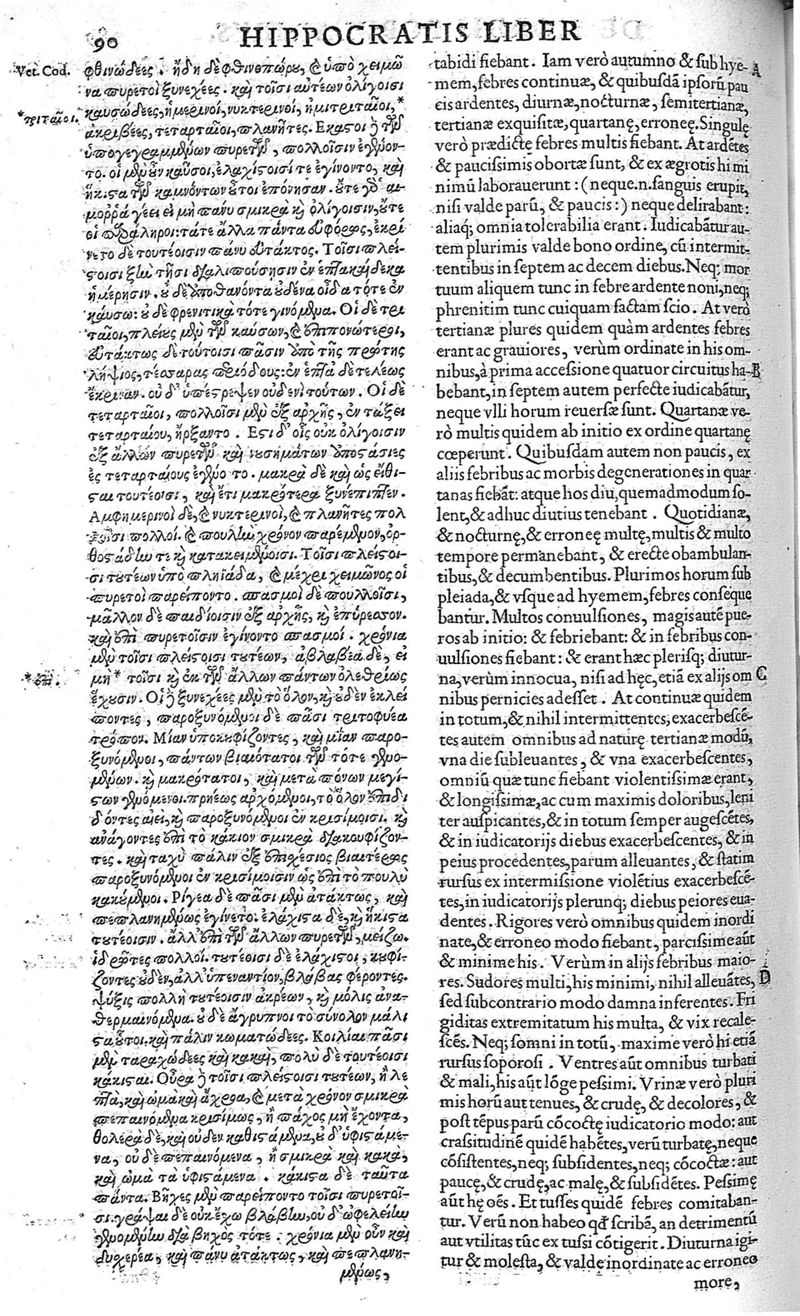 90
HIPPOCRATIS LIBER
Vet. Cod.
φθινώδεες. ἤδη δὲ φθινοπώρου, καὶ ὑπὸ χειμῶ
να πυρετοὶ ξυνεχέες. καὶ τοῖσι αὐτέων ὀλίγοισι
καυσώδεες, ἡμερινοὶ, νυκτερινοὶ, ἡμιτριταῖοι,*
*τριταῖοι.
ἀκριβέες, τεταρταῖοι, πλανῆτες. Ἕκαστοι ἢ τῶν
ὑπογεγραμμένων πυρετῶν, πολλοῖσιν ἐγένον-
το. οἱ μὲν οὖν καῦσοι, ἐλαχίστοισί τε ἐγίνοντο, καὶ
ἥκιστα τῶν καμνόντων οὗτοι ἐπόνησαν. οὔτε γὸ αἱ-
μοῤῥάγεει εἰ μὴ πάνυ σμικρὰ καὶ ὀλίγοισιν, οὔτε
οἱ παράληροι: τά τε ἄλλα πάντα εὐφόρως, ἐκρί
νετο δὲ τουτέοισιν πάνυ εὐτάκτως. Τοῖσι πλεί-
στοισι ξὺν τῇσι διαλιπούσῃσιν ἐν ἑπτακαίδεκα
ἡμέρησιν. οὐδὲ ἀποθανόντα οὐδένα οἶδα τότε ἐν
καύσω: οὐδὲ φρενιτικὰ τότε γινόμενα. Οἱ δὲ τρι
ταῖοι, πλείους μὲν τῶν καύσων, καὶ ἐπιπονώτεροι,
εὐτάκτως δὲ τούτοισι πᾶσιν ἀπὸ τῆς πρώτης
λήψιος, τέσσαρας περιόδους: ἐν ἑπτὰ δὲ τελέως
ἔκριναν. οὐδ' ὑπέστρεψεν οὐδενὶ τούτων. Οἱ δὲ
τεταρταῖοι, πολλοῖσι μὲν ἐξ ἀρχῆς, ἐν τάξει
τεταρταίου, ἤρξαντο. Ἔστι δ' οἷς οὐκ ὀλίγοισιν
ἐξ ἄλλων πυρετῶν καὶ νοσημάτων ἀποστάσιες
ἐς τεταρταίους ἐγένοντο. μακρὰ δὲ καὶ ὡς εἴθι-
σται τουτέοισι, καὶ ἔτι μακρότερα ξυνέπιπτεν.
Ἀμφημερινοὶ δὲ, καὶ νυκτερινοὶ, καὶ πλανῆτες πολ
λοῖσι πολλοί. καὶ πουλὺν χρόνον παρέμενον, ὀρ-
θοστάδην τε καὶ κατακειμένοισι. Τοῖσι πλείστοι-
σι τουτέων ὑπὸ πληϊάδα, καὶ μέχρι χειμῶνος οἱ
πυρετοὶ παρείποντο. σπασμοὶ δὲ πουλλοῖσι,
μᾶλλον δὲ παιδίοισιν ἐξ ἀρχῆς, καὶ ἐπύρεσσον.
καὶ ἐπὶ πυρετοῖσιν ἐγίνοντο σπασμοί. χρόνια
μὲν τοῖσι πλείστοισι τουτέων, ἀβλαβέα δὲ, εἰ
*ἐπὶ.
μὴ* τοῖσι καὶ ἐκ τῶν ἄλλων πάντων ὀλεθρίως
ἔχουσιν. Οἱ ἢ ξυνεχέες μὲν τὸ ὅλον, καὶ οὐδὲν ἐκλεί
ποντες, παροξυνόμενοι δὲ πᾶσι τριτοφυέα
τρόπον. Μίαν ὑποκυφίζοντες, καὶ μίαν παρο-
ξυνόμενοι, πάντων βιαιότατοι τῶν τότε γενο-
μένων. καὶ μακρότατοι, καὶ μετὰ πόνων μεγί-
στων γενόμενοι. πρηέως ἀρχόμενοι, τὸ ὅλον ἐπιδι
δόντες αἰεὶ, καὶ παροξυνόμενοι ἐν κρισίμοισι. καὶ
ἀνάγοντες ἐπὶ τὸ κάκιον σμικρὰ διακουφίζον-
τες. καὶ ταχὺ πάλιν ἐξ ἐπισχέσιος βιαιοτέρως
παροξυνόμενοι ἐν κρισίμοισιν ὡς ἐπὶ τὸ πουλὺ
κακούμενοι. Ρίγεα δὲ πᾶσι μὲν ἀτάκτως, καὶ
πεπλανημένως ἐγίνετο. ἐλάχιστα δὲ, καὶ ἥκιστα
τουτέοισιν. ἀλλ' ἐπὶ τῶν ἄλλων πυρετῶν, μείζω.
ἱδρῶτες πολλοί. τουτέοισι δὲ ἐλάχιστοι, κουφί-
ζοντες οὐδὲν, ἀλλ' ὑπεναντίον, βλάβας φέροντες.
Ψύξις πολλὴ τουτέοισιν ἀκρέων, καὶ μόλις ἀνα-
θερμαινόμενα. οὐδὲ ἄγρυπνοι τὸ σύνολον μάλι
στα οὗτοι. καὶ πάλιν κωματώδεες. Κοιλίαι πᾶσι
μὲν ταραχώδεες καὶ κακαὶ, πολὺ δὲ τουτέοισι
κάκισται. Οὖρα ἢ τοῖσι πλείστοισι τουτέων, ἢ λε
πτὰ, καὶ ὠμὰ καὶ ἄχροα, καὶ μετὰ χρόνον σμικρὰ
πεπαινόμενα κρισίμως, ἢ πάχος μὴ ἔχοντα,
θολερὰ δὲ, καὶ οὐδὲν καθιστάμενα, οὐδ' ὑφιστάμε-
να, οὐδὲ πεπαινόμενα, ἢ σμικρὰ καὶ κακὰ,
καὶ ὠμὰ τὰ ὑφιστάμενα. κάκιστα δὲ ταῦτα
πάντα. Βῆχες μὲν παρείποντο τοῖσι πυρετοῖ-
σι. γράψαι δὲ οὐκ ἔχω βλάβην, οὐδ' ὠφελείην
γενομένην διὰ βηχὸς τότε. χρόνια μὲν οὖν καὶ
δυσχερέα, καὶ πάνυ ἀτάκτως, καὶ πεπλανη-
μένως,
tabidi fiebant. Iam verò autumno & sub hye-
A
mem, febres continuæ, & quibusdã ipsorũ pau
cis ardentes, diurnæ, nocturnæ, semitertianæ,
tertianæ exquisitæ, quartanę, erroneę. Singulę
verò prædictę febres multis fiebant. At ardẽtes
& paucissimis obortæ sunt, & ex ægrotis hi mi
nimũ laborauerunt: (neque.n. sanguis erupit,
nisi valde parũ, & paucis:) neque delirabant:
aliaq; omnia tolerabilia erant. Iudicabãtur au-
tem plurimis valde bono ordine, cũ intermit-
tentibus in septem ac decem diebus. Neq; mor
tuum aliquem tunc in febre ardente noni, neq;
phrenitim tunc cuiquam factam scio. At verò
tertianæ plures quidem quàm ardentes febres
erant ac grauiores, verùm ordinate in his om-
nibus, à prima accessione quatuor circuitus ha-
B
bebant, in septem autem perfecte iudicabãtur,
neque vlli horum reuersæ sunt. Quartanæ ve-
rò multis quidem ab initio ex ordine quartanę
cœperunt. Quibusdam autem non paucis, ex
aliis febribus ac morbis degenerationes in quar
tanas fiebãt: atque hos diu, quemadmodum so-
lent, & adhuc diutius tenebant. Quotidianæ,
& nocturnę, & erroneę multę, multis & multo
tempore permanebant, & erecte obambulan-
tibus, & decumbentibus. Plurimos horum sub
pleiada, & vsque ad hyemem, febres conseque
bantur. Multos conuulsiones, magis autẽ pue-
ros ab initio: & febriebant: & in febribus con-
uulsiones fiebant: & erant hæc plerisq; diutur-
na, verùm innocua, nisi ad hęc, etiã ex alijs om
C
nibus pernicies adesset. At continuæ quidem
in totum, & nihil intermittentes, exacerbescẽ-
tes autem omnibus ad naturę tertianæ modũ,
vna die subleuantes, & vna exacerbescentes,
omniũ quæ tunc fiebant violentissimæ erant,
& longissimæ, ac cum maximis doloribus, leni
ter auspicantes, & in totum semper augescẽtes,
& in iudicatorijs diebus exacerbescentes, & in
peius procedentes, parum alleuantes, & statim
rursus ex intermissione violẽtius exacerbescẽ-
tes, in iudicatorijs plerunq; diebus peiores eua-
dentes. Rigores verò omnibus quidem inordi
nate, & erroneo modo fiebant, parcissime aũt
& minime his. Verùm in alijs febribus maio-
res. Sudores multi, his minimi, nihil alleuãtes,
D
sed subcontrario modo damna inferentes. Fri
giditas extremitatum his multa, & vix recale-
scẽs. Neq; somni in totũ, maxime verò hi etiã
rursus soporosi. Ventres aũt omnibus turbati
& mali, his aũt lõge pessimi. Vrinæ verò pluri
mis horũ aut tenues, & crudę, & decolores, &
post tẽpus parũ cõcoctę iudicatorio modo: aut
crassitudinẽ quidẽ habẽtes, verũ turbatę, neque
cõsistentes, neq; subsidentes, neq; cõcoctæ: aut
paucę, & crudę, ac malę, & subsidẽtes. Pessimę
aũt hę oẽs. Et tusses quidẽ febres comitaban-
tur. Verũ non habeo qđ scribã, an detrimentũ
aut vtilitas tũc ex tussi cõtigerit. Diuturna igi-
tur & molesta, & valde inordinate ac erroneo
more,